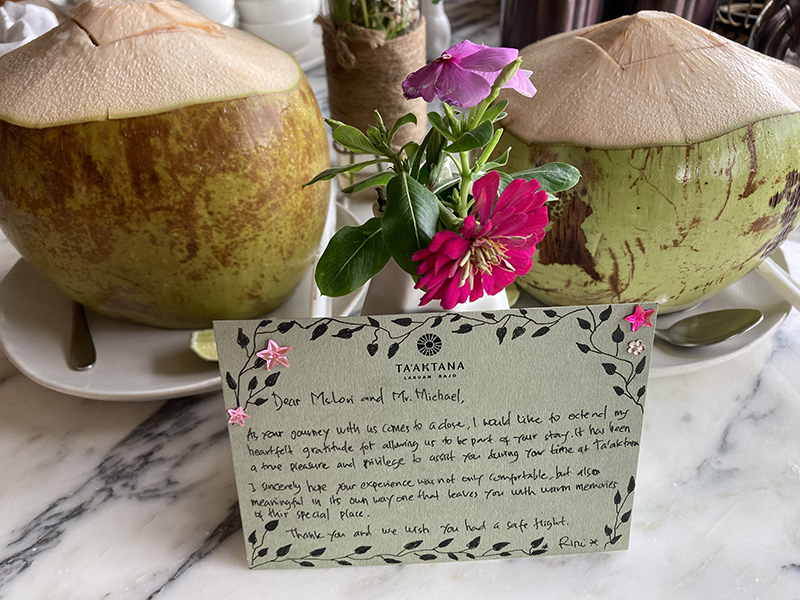 TA'AKTANA
LABUAN BAJO
Dear Ms Lori and Mr. Michael,
As your journey with us comes to a close, I would like to extend my
heartfelt gratitude for allowing us to be part of your stay. It has been
a true pleasure and privilege to assist you during your time at Ta'aktana
I sincerely hope your experience was not only comfortable, but also
meaningful in its own way one that leaves you with warm memories
of this special place.
Thank you and we wish you had a safe flight.
Rini